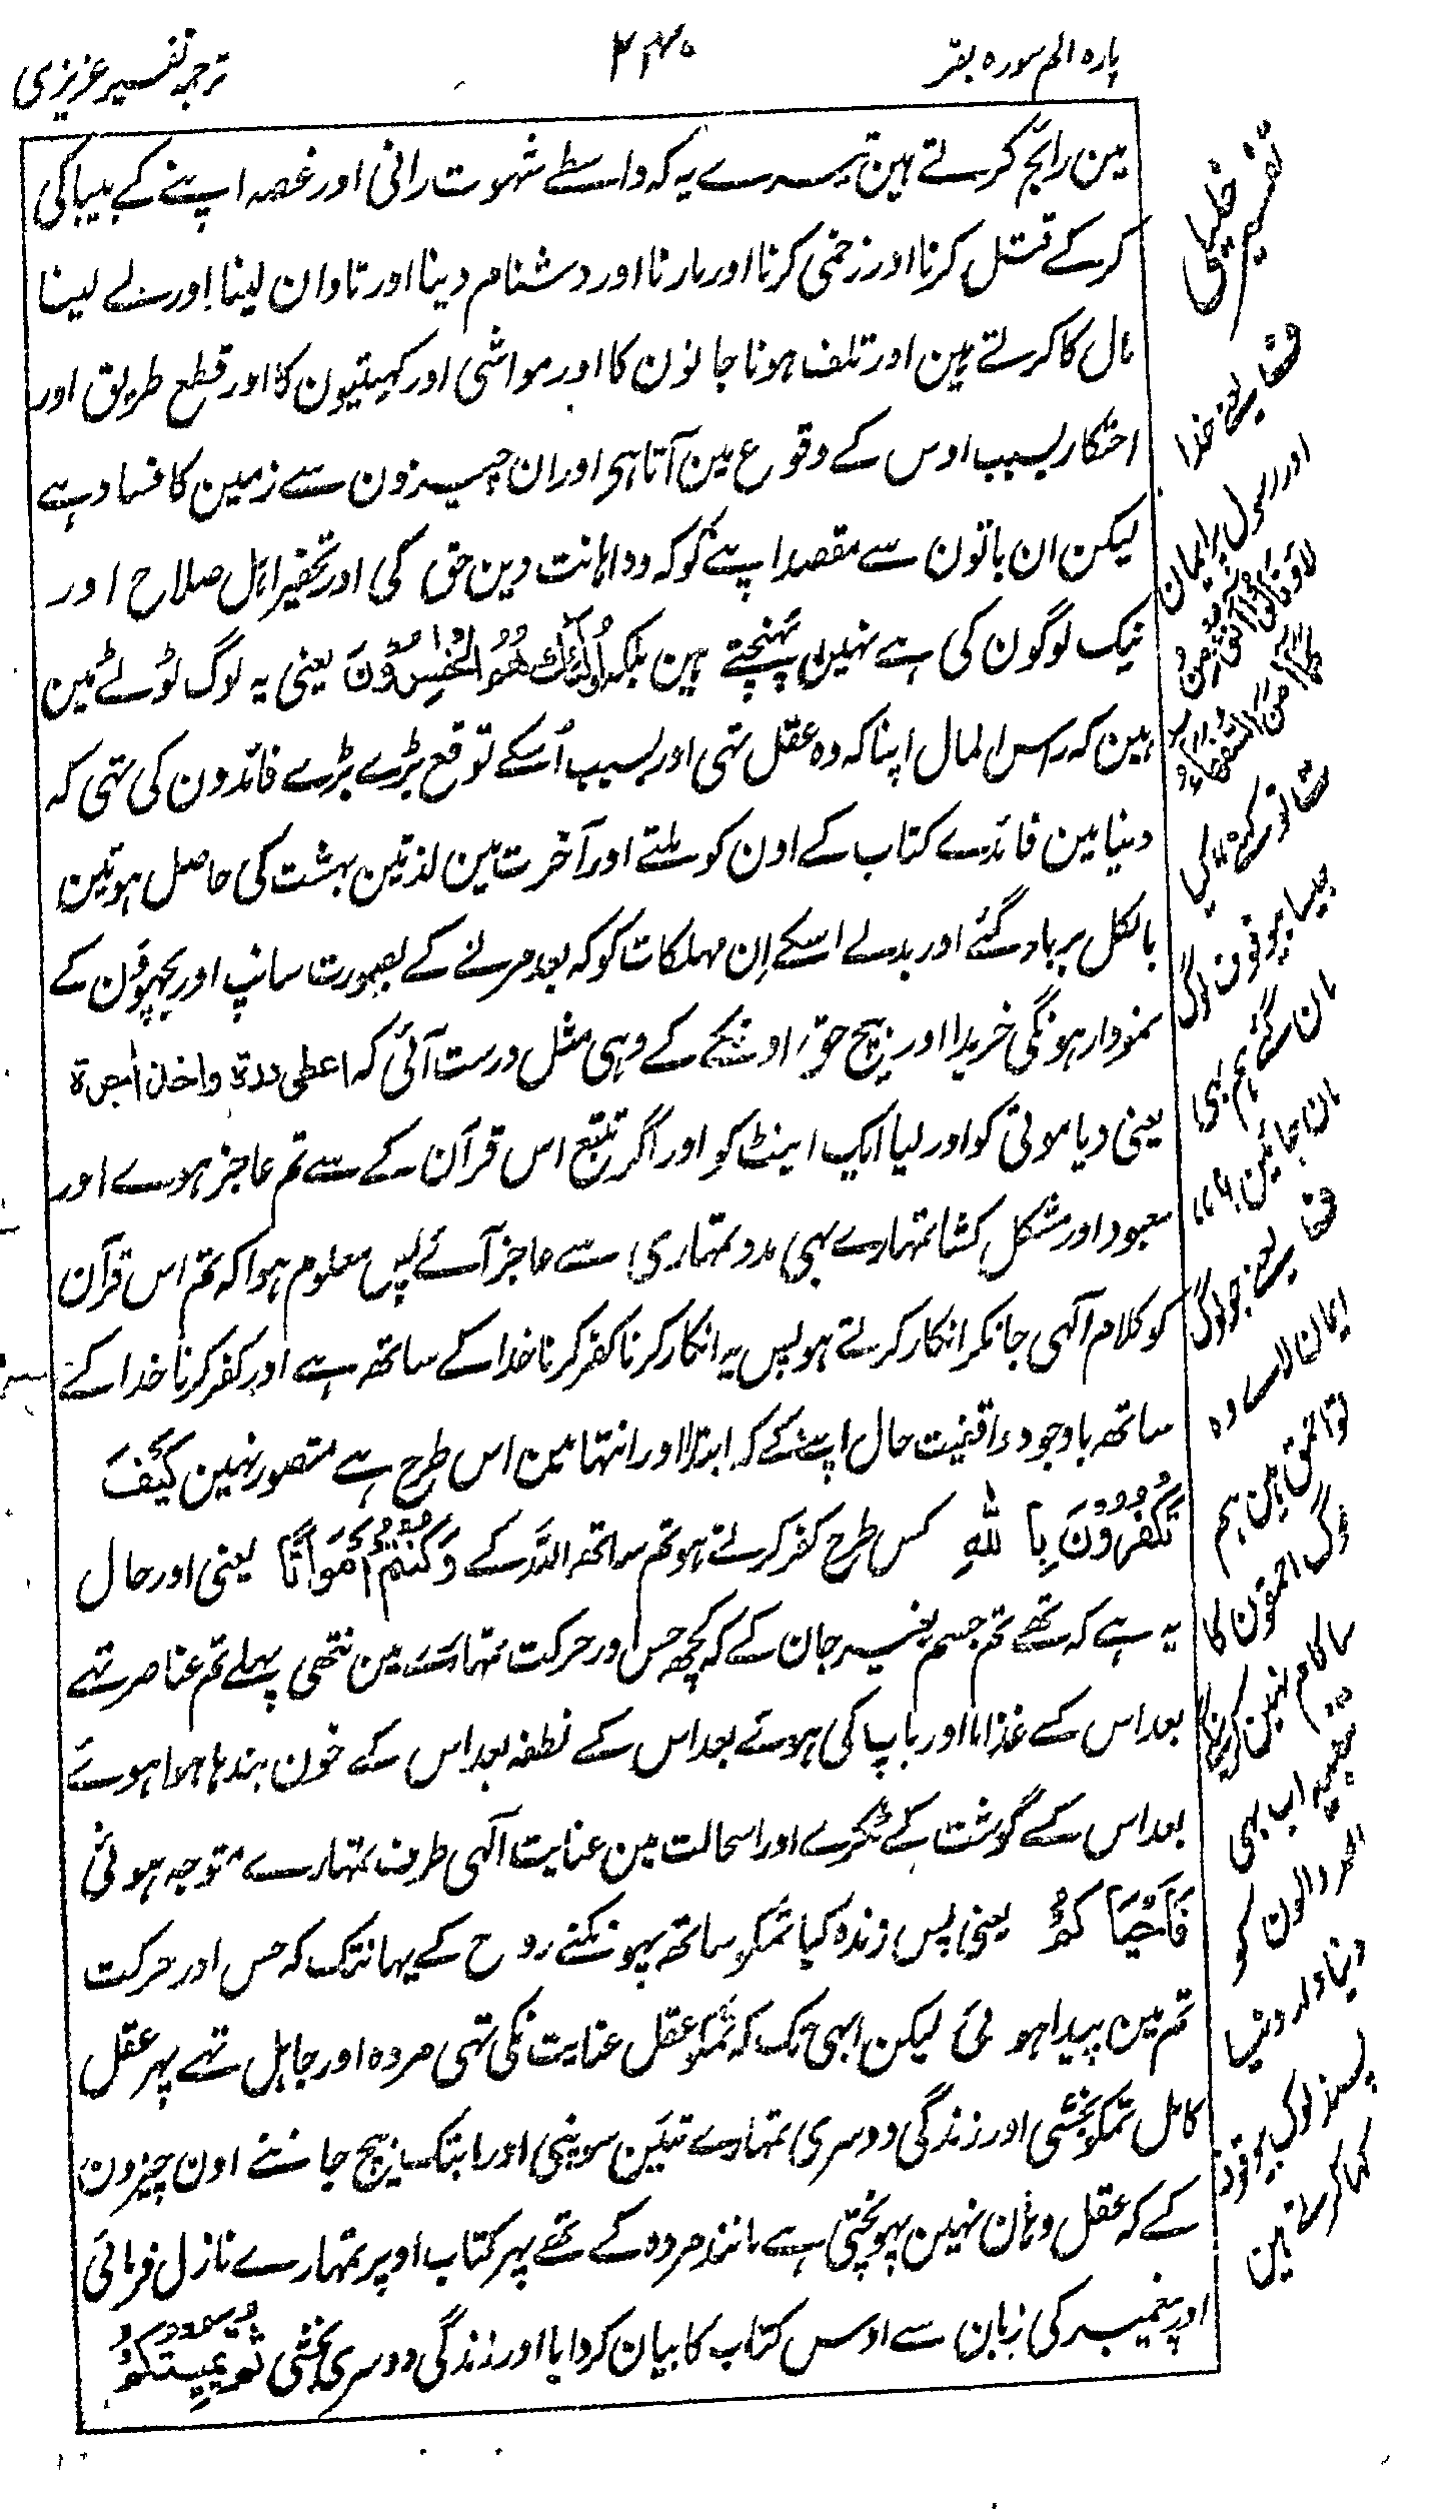 پارہ الم سورہ بقر
۲۳۰
ترجمہ تفسیر عزیزی
مین رائج کرتے ہین تیسرے یہ کہ واسطے شہوت رانی اور غصہ اپنے کے بیباکی
کرکے قتل کرنا اور زخمی کرنا اور مارنا اور دشنام دینا اور تاوان لینا اور لے لینا
مال کا کرتے ہین اور تلف ہونا جانون کا اور مواشی اور کہیتیون کا اور قطع طریق اور
احتکار بسبب اوس کے وقوع مین آتا ہی اور ان چیزون سے زمین کا فساد ہے
لیکن ان باتون سے مقصد اپنے کو کہ وہ اہانت دین حق کی اور تحقیر اہل صلاح اور
نیک لوگون کی ہے نہین پہنچتے ہین بلکہ اُولٰٓئِكَ هُمُ الْخٰسِرُوْنَ یعنی یہ لوگ ٹوٹے مین
ہین کہ راس المال اپنا کہ وہ عقل تہی اور بسبب اُسکے توقع بڑے بڑے فائدون کی تہی کہ
دنیا مین فائدے کتاب کے اون کو ملتے اور آخرت مین لذتین بہشت کی حاصل ہوتین
بالکل برباد گئے اور بدلے اسکے اِن مہلکات کو کہ بعد مرنے کے بصورت سانپ اور بچہوؤن کے
نمودار ہونگی خریدا اور بیچ حق اونکے کے وہی مثل درست آئی کہ اعطی درة واخذ اٰجرة
یعنی دیا موتی کو اور لیا ایک اینٹ کو اور اگر تتبع اس قرآن کے سے تم عاجز ہوے اور
معبود اور مشکل کشا تمہارے بہی مدد تمہاری سے عاجز آئے پس معلوم ہوا کہ تم اس قرآن
کو کلام آلہی جانکر انکار کرتے ہو پس یہ انکار کرنا کفر کرنا خدا کے ساتھہ ہے اور کفر کرنا خدا کے
ساتھہ باوجود واقفیت حال اپنے کے کہ ابتدا اور انتہا مین اس طرح ہے متصور نہین كَيْفَ
تَكْفُرُوْنَ بِاللّٰهِ کس طرح کفر کرتے ہو تم ساتھہ اللہ کے وَكُنْتُمْ اَمْوَاتًا یعنی اور حال
یہ ہے کہ تھے تم جسم بغیر جان کے کہ کچھہ حس اور حرکت تمہارے مین نتھی پہلے تم عناصر تہے
بعد اس کے غذا ما اور باپ کی ہوئے بعد اس کے نطفہ بعد اس کے خون بندہا ہوا ہوئے
بعد اس کے گوشت کے ٹکرے اور اسحالت مین عنایت آلہی طرف تمہارے متوجہ ہوئی
فَاَحْيَاكُمْ یعنی پس زندہ کیا تمکو ساتھہ پہونکنے روح کے یہانتک کہ حس اور حرکت
تم مین پیدا ہوئی لیکن ابہی تک کہ تمکو عقل عنایت نکی تہی مردہ اور جاہل تہے پہر عقل
کامل تمکو بخشی اور زندگی دوسری تمہارے تئین سونپی اور ابتک بیچ جاننے اون چیزون
کے کہ عقل وہان نہین پہونچتی ہے مانند مردہ کے تھے پہر کتاب اوپر تمہارے نازل فرمائی
اور پیغمبر کی زبان سے اوس کتاب کا بیان کروایا اور زندگی دوسری بخشی ثُمَّ يُمِيْتُكُمْ
تفسیر خلیلی
فٹ یعنے خدا
اور رسول پر ایمان
لاؤ
شانور کہتے ہین کہ
بیوقوف لوگ
مان گئے ہم بہی
مان جائین
فٹ یعنے جو لوگ
ایمان لائے وہ
تو احمق ہین ہم
لوگ احمقون کا
سا کام نہین کرینگے
اب بہی
والون کو
دنیا دار
لوگ بیوقوف
کہا کرتے ہین